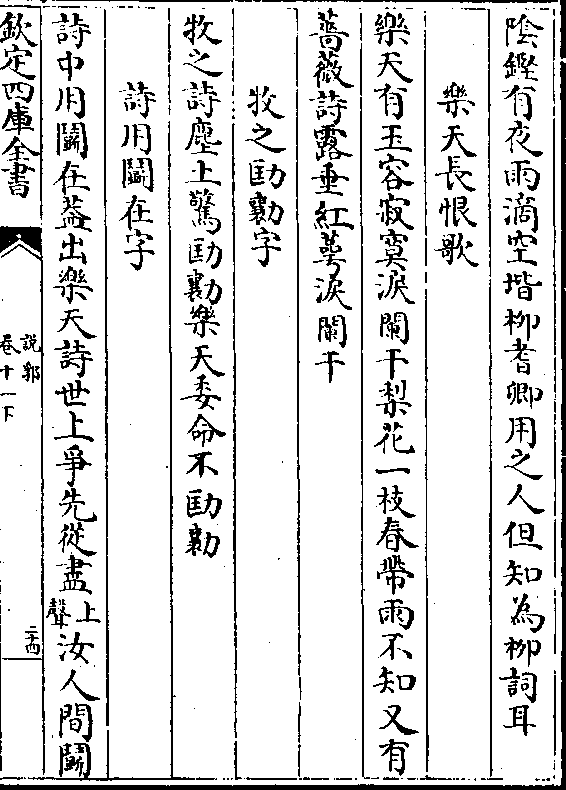 陰鏗有夜雨滴空堦柳耆卿用之人但知為柳詞耳
樂天長恨歌
樂天有玉容寂寞淚闌干梨花一枝春帶雨不知又有
薔薇詩露垂紅萼淚闌干
牧之劻勷字
牧之詩塵土驚劻勷樂天委命不劻勷
詩用鬭在字
詩中用鬭在葢出樂天詩世上爭先從盡上聲汝人間鬭
欽定四庫全書
説郛
卷十一下
二十四